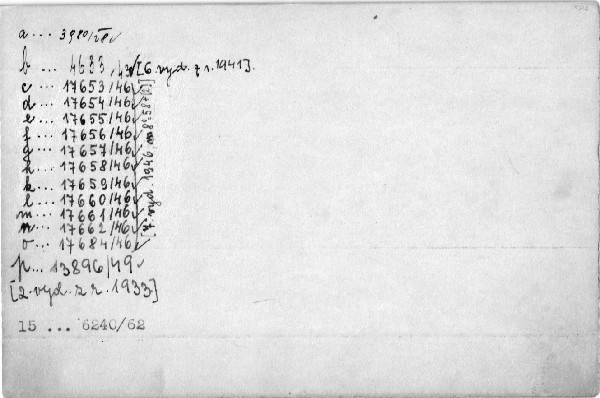 a ... 3980/
b ... 4633/43 [6. vyd. z r. 1941].
c ... 17653/46
d ... 17654/46
e ... 17655/46
f ... 17656/46
g ... 17657/46
h ... 17658/46
k ... 17659/46
l ... 17660/46
m ... 17661/46
n ... 17662/46
o ... 17684/46
[7. vyd. 1946,
p... 13896/49
[2. vyd. z r. 1933]
15 ... 6240/62